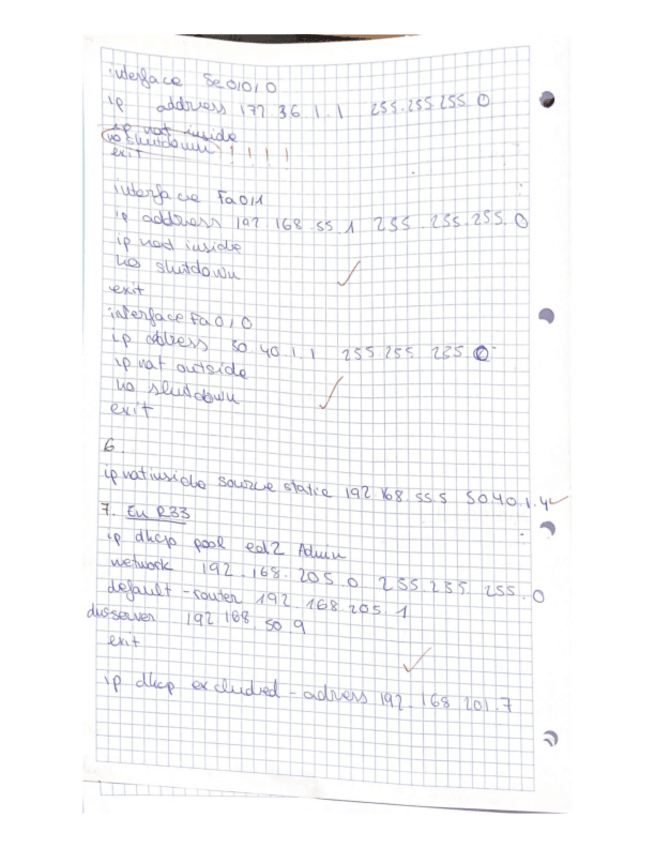 interface Se0/0/0
ip address 172.36.1.1 255.255.255.0
ip nat inside
no shutdown !!!!
exit
interface Fa0/1
ip address 192.168.55.1 255.255.255.0
ip nad inside
no shutdown
exit
interface Fa0/0
ip address 50.40.1.1 255.255.255.0
ip nat outside
no shutdown
exit
6.
ip nat inside source static 192.168.55.5 50.40.1.4
7. En R33
ip dhcp pool ed2 Admin
network 192.168.205.0 255.255.255.0
default-router 192.168.205.1
dns server 192.168.50.9
exit
ip dhcp excluded-adress 192.168.201.7